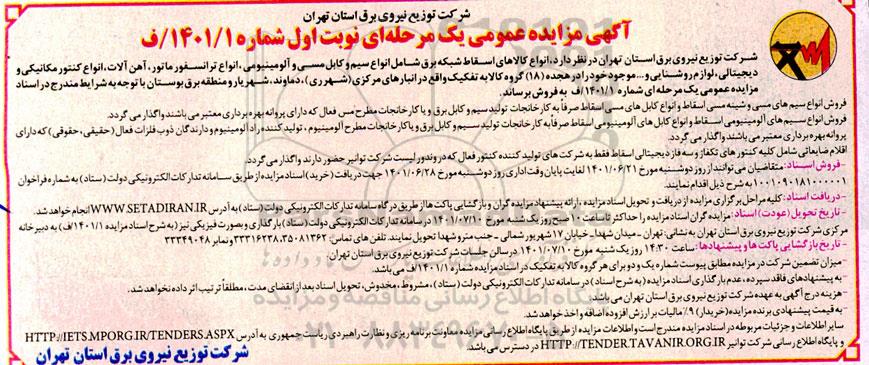 شرکت توزیع نیروی برق استان تهران
آگهی مزایده عمومی یک مرحله‌ای نوبت اول شماره ۱۴۰۱/۱/ف
شرکت توزیع نیروی برق استان تهران در نظر دارد، انواع کالاهای اسقاط شبکه برق شامل انواع سیم و کابل مسی و آلومینیومی، انواع ترانسفورماتور، آهن آلات، انواع کنتور مکانیکی و
دیجیتالی، لوازم روشنایی و... موجود خود را در هجده (۱۸) گروه کالا به تفکیک واقع در انبارهای مرکزی (شهرری)، دماوند، شهریار و منطقه برق بوستان با توجه به شرایط مندرج در اسناد
مزایده عمومی یک مرحله ای شماره ۱۴۰۱/۱/ف به فروش برساند.
فروش انواع سیم های مسی و شینه مسی اسقاط و انواع کابل های مسی اسقاط صرفاً به کارخانجات تولید سیم و کابل برق و یا کارخانجات مطرح مس فعال که دارای پروانه بهره برداری معتبر می باشند واگذار می گردد.
فروش انواع سیم های آلومینیومی اسقاط و انواع کابل های آلومینیومی اسقاط صرفاً به کارخانجات تولید سیم و کابل برق و یا کارخانجات مطرح آلومینیوم، تولید کننده راد آلومینیوم و دارندگان ذوب فلزات فعال (حقیقی، حقوقی) که دارای
پروانه بهره برداری معتبر می باشند واگذار می گردد.
اقلام ضایعاتی شامل کلیه کنتور های تکفاز و سه فاز دیجیتالی اسقاط فقط به شرکت های تولید کننده کنتور فعال که در وندور لیست شرکت توانیر حضور دارند واگذار می گردد.
-فروش اسناد: متقاضیان می توانند از روز دوشنبه مورخ ۱۴۰۱/۰۶/۲۱ لغایت پایان وقت اداری روز دوشنبه مورخ ۱۴۰۱/۰۶/۲۸ جهت دریافت (خرید) اسناد مزایده از طریق سامانه تدارکات الکترونیکی دولت (ستاد) به شماره فراخوان
۱۰۰۱۰۹۰۱۸۱۰۰۰۰۰۱ به شرح ذیل اقدام نمایند.
-دریافت اسناد: کلیه مراحل برگزاری مزایده از دریافت و تحویل اسناد مزایده، ارائه پیشنهاد مزایده گران و بازگشایی پاکت ها از طریق درگاه سامانه تدارکات الکترونیکی دولت (ستاد) به آدرس WWW.SETADIRAN.IR انجام خواهد شد.
-تاریخ تحویل (عودت) اسناد: مزایده گران اسناد مزایده را حداکثر تا ساعت ۱۰ صبح روز یک شنبه مورخ ۱۴۰۱/۰۷/۱۰ در سامانه تدارکات الکترونیکی دولت (ستاد) بارگذاری و بصورت فیزیکی نیز (به شرح اسناد مزایده ۱۴۰۱/۱/ف) به دبیرخانه
مرکزی شرکت توزیع نیروی برق استان تهران به نشانی: تهران - میدان شهدا - خیابان ۱۷ شهریور شمالی - جنب مترو شهدا تحویل نمایند. تلفن های تماس: ۳۵۰۸۱۳۶۲، ۳۳۳۱۶۳۳۸ و نمابر ۳۳۳۴۹۰۴۸
-تاریخ بازگشایی پاکت ها و پیشنهادها: ساعت ۱۴:۳۰ روز یک شنبه مورخ ۱۴۰۱/۰۷/۱۰ در سالن جلسات شرکت توزیع نیروی برق استان تهران.
-میزان تضمین شرکت در مزایده مطابق پیوست شماره یک و دو برای هر گروه کالا به تفکیک در اسناد مزایده شماره ۱۴۰۱/۱/ف می باشد.
-به پیشنهادهای فاقد سپرده، عدم بارگذاری اسناد مزایده (به شرح اسناد) در سامانه تدارکات الکترونیکی دولت (ستاد)، مشروط، مخدوش، تحویل اسناد بعد از انقضای مدت، مطلقاً ترتیب اثر داده نخواهد شد.
-هزینه درج آگهی به عهده شرکت توزیع نیروی برق استان تهران می باشد.
-به قیمت پیشنهادی برنده مزایده (خریدار) ۹٪ مالیات بر ارزش افزوده اضافه و اخذ خواهد شد.
سایر اطلاعات و جزئیات مربوطه در اسناد مزایده مندرج است و اطلاعات مزایده از طریق پایگاه اطلاع رسانی مزایده معاونت برنامه ریزی و نظارت راهبردی ریاست جمهوری به آدرس HTTP://IETS.MPORG.IR/TENDERS.ASPX
و پایگاه اطلاع رسانی شرکت توانیر HTTP://TENDER.TAVANIR.ORG.IR در دسترس می باشد.
شرکت توزیع نیروی برق استان تهران